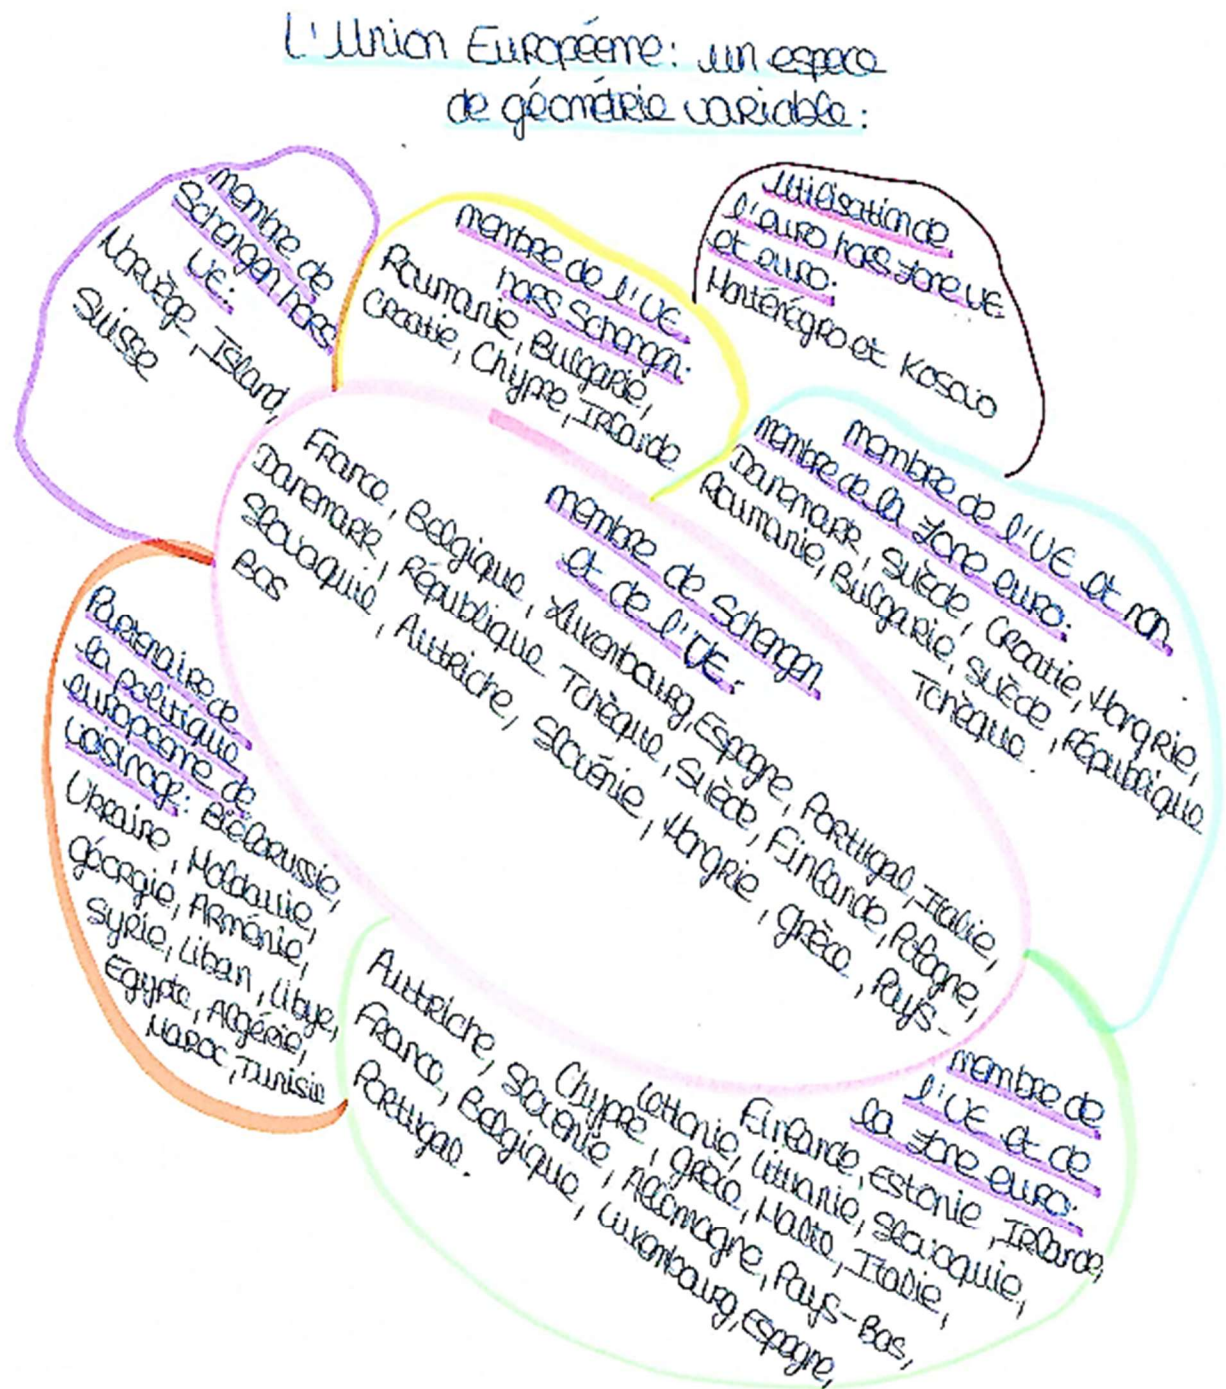 L'Union Européenne: un espace
de géométrie variable:
membre de
Schengen hors
UE:
Norvège, Island,
Suisse
membre de l'UE
hors Schengen:
Roumanie, Bulgarie,
Croatie, Chypre, Irlande
Utilisation de
l'euro hors zone UE
et euro:
Monténégro et Kosovo
membre de l'UE et non
membre de la zone euro:
Danemark, Suède, Croatie, Hongrie,
Roumanie, Bulgarie, Suède, République
Tchèque.
membre de Schengen
et de l'UE:
France, Belgique, Luxembourg, Espagne, Portugal, Italie,
Danemark, République Tchèque, Suède, Finlande, Pologne,
Slovaquie, Autriche, Slovénie, Hongrie, Grèce, Pays-
Bas
Partenaire de
la politique
européenne de
voisinage: Biélorussie,
Ukraine, Moldavie,
Géorgie, Arménie,
Syrie, Liban, Libye,
Egypte, Algérie,
Maroc, Tunisie
membre de
l'UE et de
la zone euro:
Finlande, Estonie, Irlande,
Lettonie, Lituanie, Slovaquie,
Chypre, Grèce, Malte, Italie,
Autriche, Slovénie, Allemagne, Pays-Bas,
France, Belgique, Luxembourg, Espagne,
Portugal.